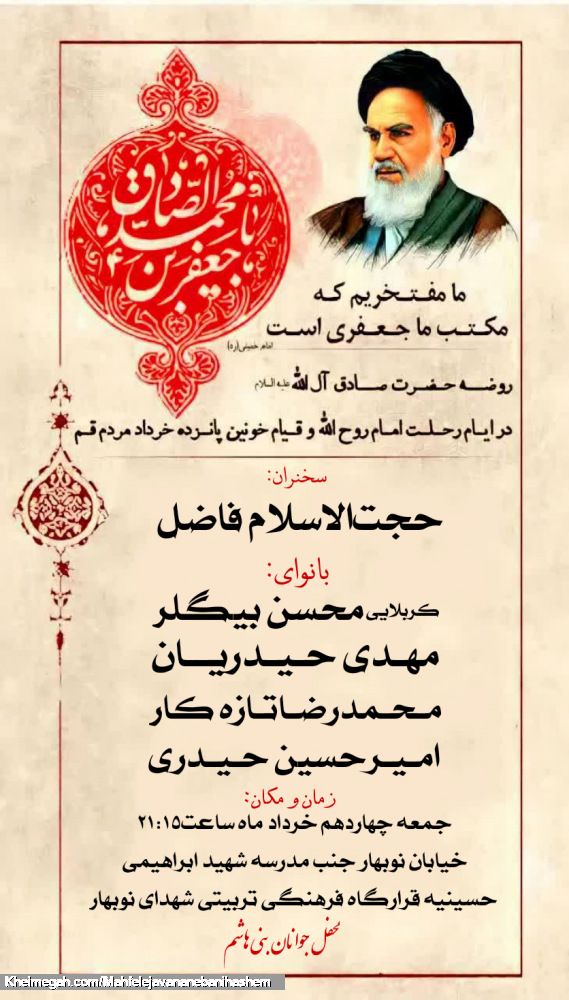 یا جعفر بن محمد الصادق ع
ما مفتخریم که
مکتب ما جعفری است
امام خمینی(ره)
روضه حضرت صادق آل الله علیه السلام
در ایام رحلت امام روح الله و قیام خونین پانزده خرداد مردم قم
سخنران:
حجت‌الاسلام فاضل
بانوای:
کربلایی محسن بیگلر
مهدی حیدریان
محمدرضا تازه کار
امیرحسین حیدری
زمان و مکان:
جمعه چهاردهم خرداد ماه ساعت ۲۱:۱۵
خیابان نوبهار جنب مدرسه شهید ابراهیمی
حسینیه قرارگاه فرهنگی تربیتی شهدای نوبهار
محفل جوانان بنی هاشم
Kheimegah.com/Mahfelejavananebanihashem